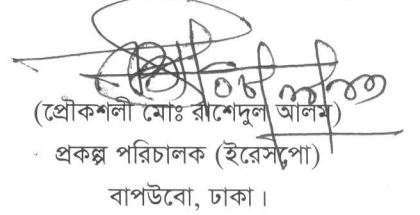 (প্রৌকশলী মোঃ রাশেদুল আলম)
প্রকল্প পরিচালক (ইরেসপো)
বাপউবো, ঢাকা।